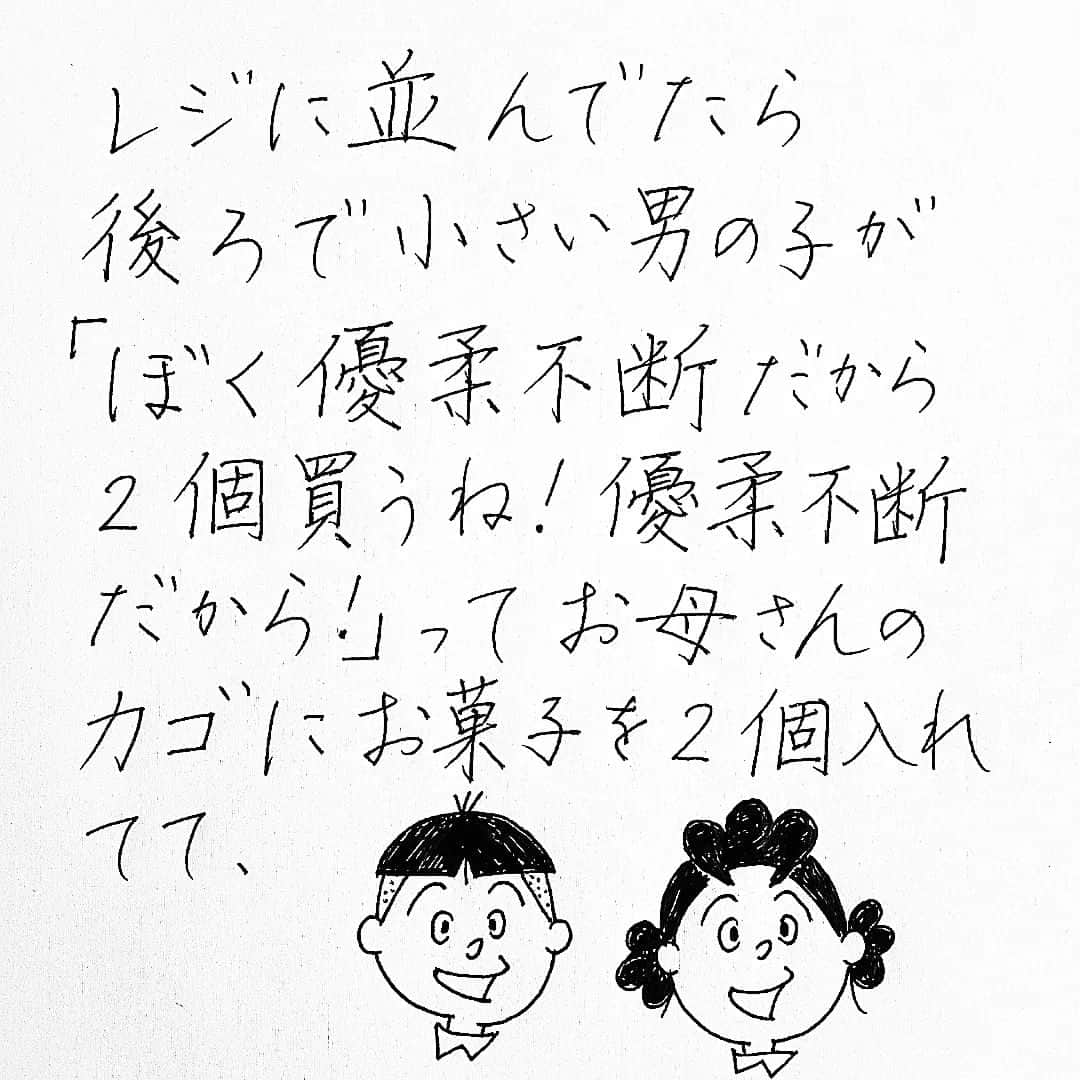 レジに並んでたら
後ろで小さい男の子が
「ぼく優柔不断だから
2個買うね！優柔不断
だから！」ってお母さんの
カゴにお菓子を2個入れ
てて、